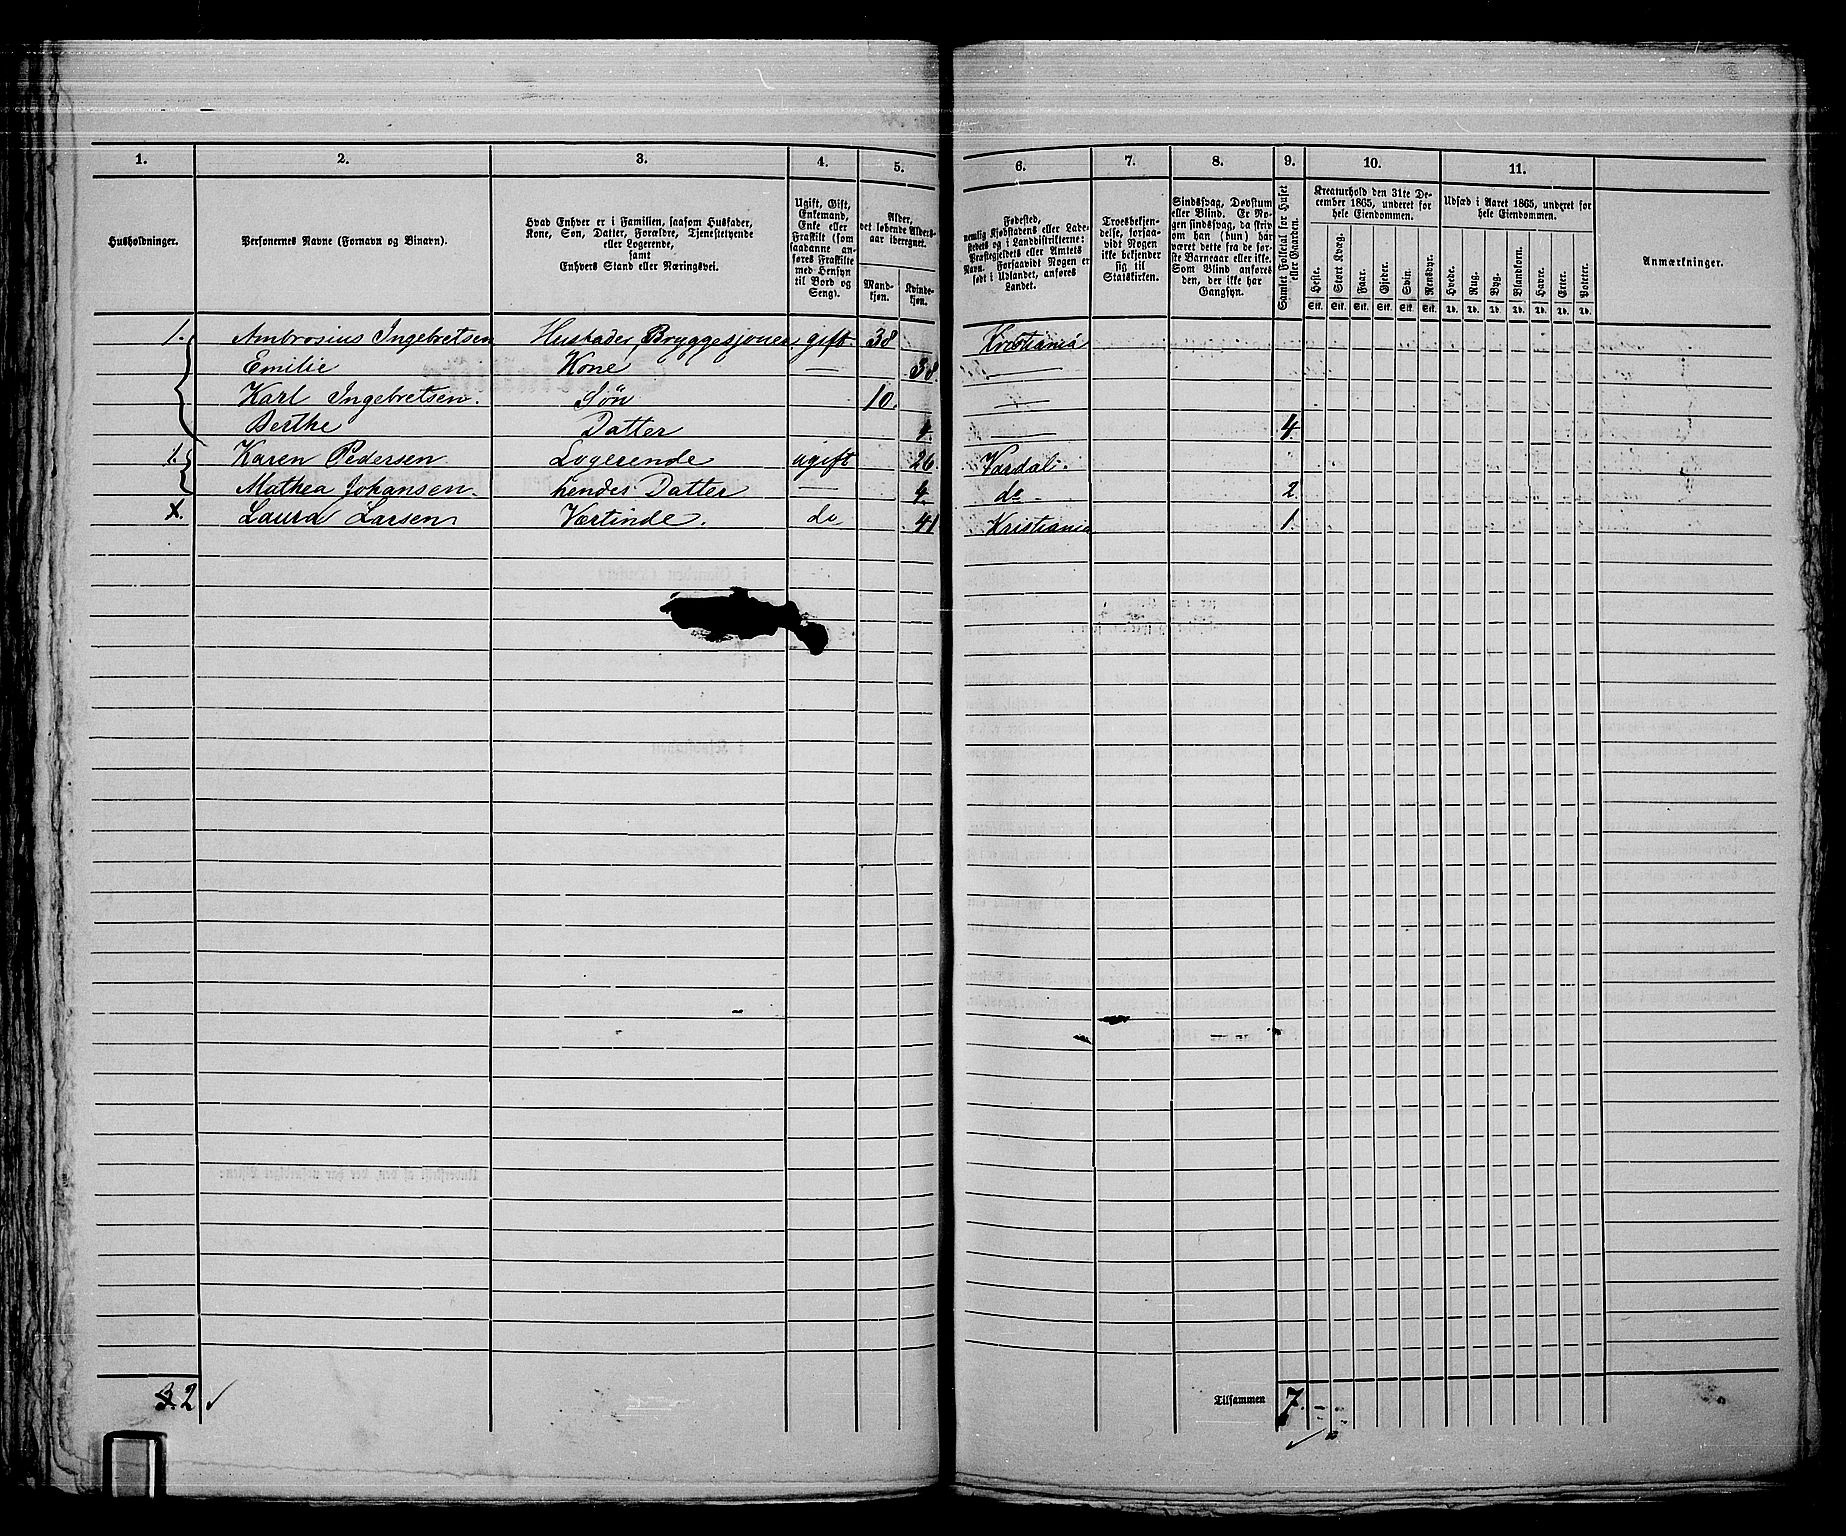 1. 2. 3. 4. 5. 6. 7. 8. 9. 10. 11.
Husholdninger.
Personernes Navne (Fornavn og Binavn).
Hvad Enhver er i Familien, saasom Husfader,
Kone, Søn, Datter, Forældre, Tjenestetyende
eller Logerende,
samt
Enhvers Stand eller Næringsvei.
Ugift, Gift,
Enkemand,
Enke eller
Fraskilt (som
saadanne an-
føres Fraskilte
med Hensyn
til Bord og
Seng).
Alder,
det løbende Alders-
aar iberegnet.
Mand-
kjøn.
Kvinde-
kjøn.
Fødested,
nemlig Kjøbstadens eller Lade-
stedets og i Landdistrikterne:
Præstegjeldets eller Amtets
Navn. Forsaavidt Nogen er
født i Udlandet, anføres
Landet.
Troesbekjen-
delse, forsaa-
vidt Nogen
ikke bekjender
sig til
Statskirken.
Sindssvag, Døvstum
eller Blind. Er No-
gen sindssvag, da skriv
om han (hun) har
været dette fra de før-
ste Barneaar eller ikke.
Som Blind anføres
den, der ikke har
Gangsyn.
Samlet Folketal for Huset
eller Gaarden.
Kreaturhold den 31te De-
cember 1865, underet for
hele Eiendommen.
Heste. Stort Kvæg. Faar. Gjeder. Svin. Rensdyr.
Stk. Stk. Stk. Stk. Stk. Stk.
Udsæd i Aaret 1865, underet for
hele Eiendommen.
Hvede. Rug. Byg. Blandkorn. Havre. Erter. Poteter.
Td. Td. Td. Td. Td. Td. Td.
Anmærkninger.
1. Ambrosius Ingebretsen Husfader, Bryggesjouer gift 38 Kristiania
Emilie Kone — 38 —
Karl Ingebretsen. Søn 10. —
Berthe Datter 4 — 4.
1. Karen Pedersen Logerende ugift 26 Vardal.
Mathea Johansen. hendes Datter — 4 do 2.
X. Laura Larsen Værtinde. do 41 Kristiania 1.
3. 2 ✓
Tilsammen 7.